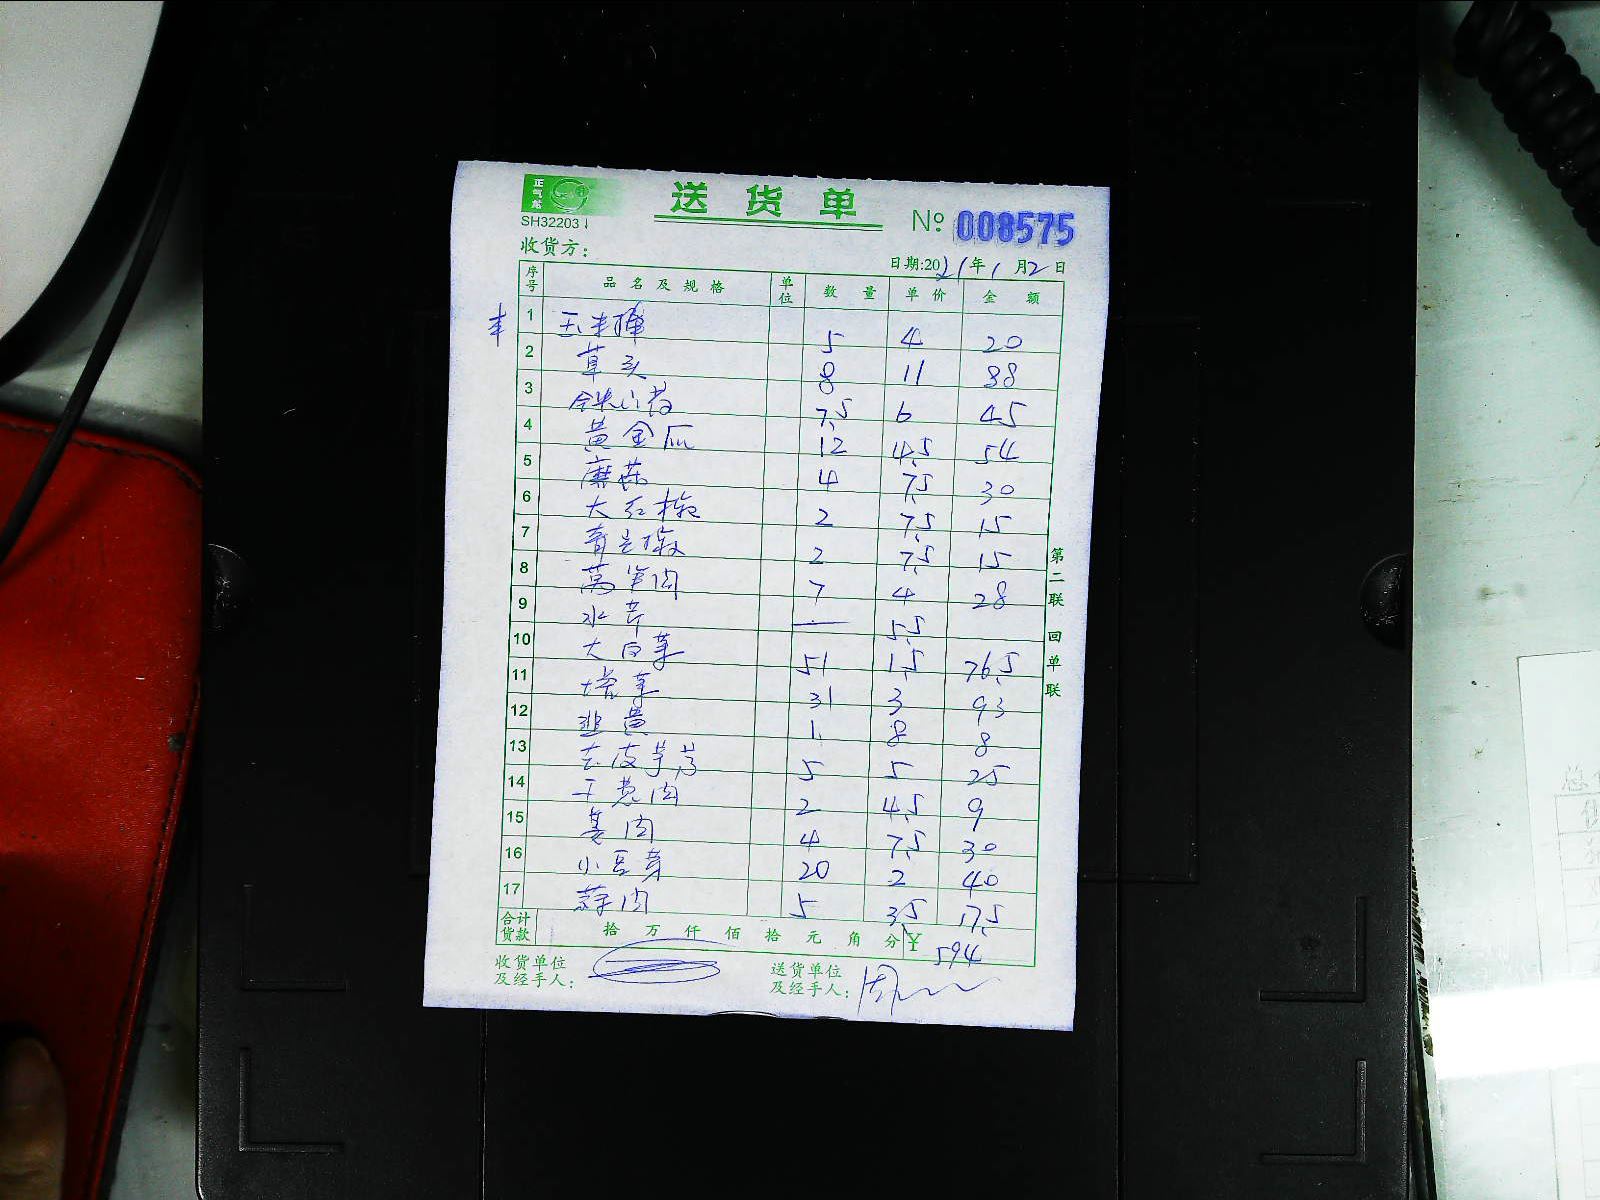 正气站
SH32203
送 货 单
№ 008575
收货方：
日期:2021年1月2日
序号 品名及规格 单位 数量 单价 金额
1 5 4 20
2 草头 8 11 88
3 7.5 6 45
4 黄金瓜 12 4.5 54
5 蘑菇 4 7.5 30
6 大红椒 2 7.5 15
7 青尖椒 2 7.5 15
8 莴笋肉 7 4 28
9 水芹 — 5.5
10 大白菜 51 1.5 76.5
11 塔菜 31 3 93
12 韭黄 1 8 8
13 去皮芋艿 5 5 25
14 干葱肉 2 4.5 9
15 姜肉 4 7.5 30
16 小豆芽 20 2 40
17 蒜肉 5 3.5 17.5
合计货款 拾 万 仟 佰 拾 元 角 分 ¥ 594
收货单位及经手人：
送货单位及经手人： 周
第二联 回单联